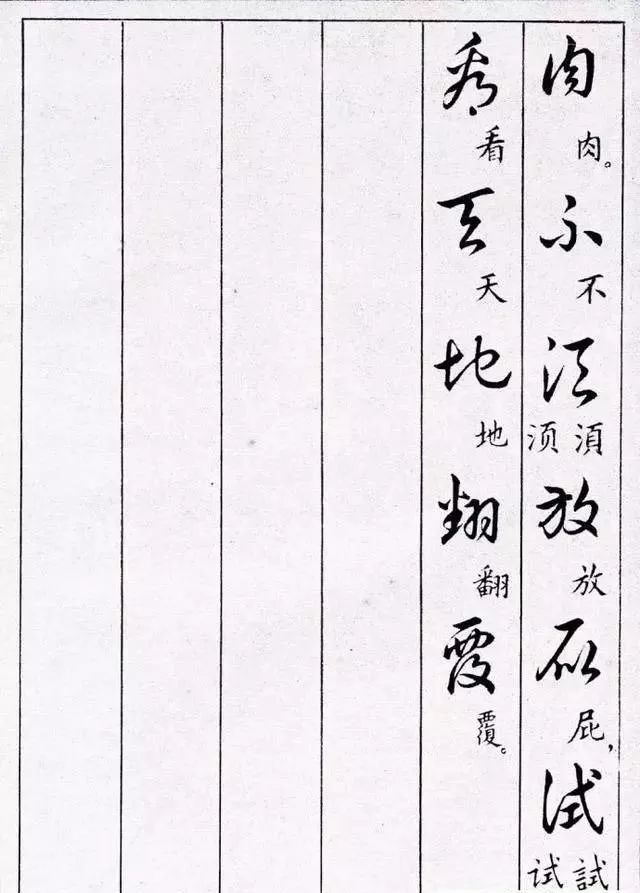 肉不须放屁试
肉。不须須放屁，试試
看天地翻覆
看天地翻覆。